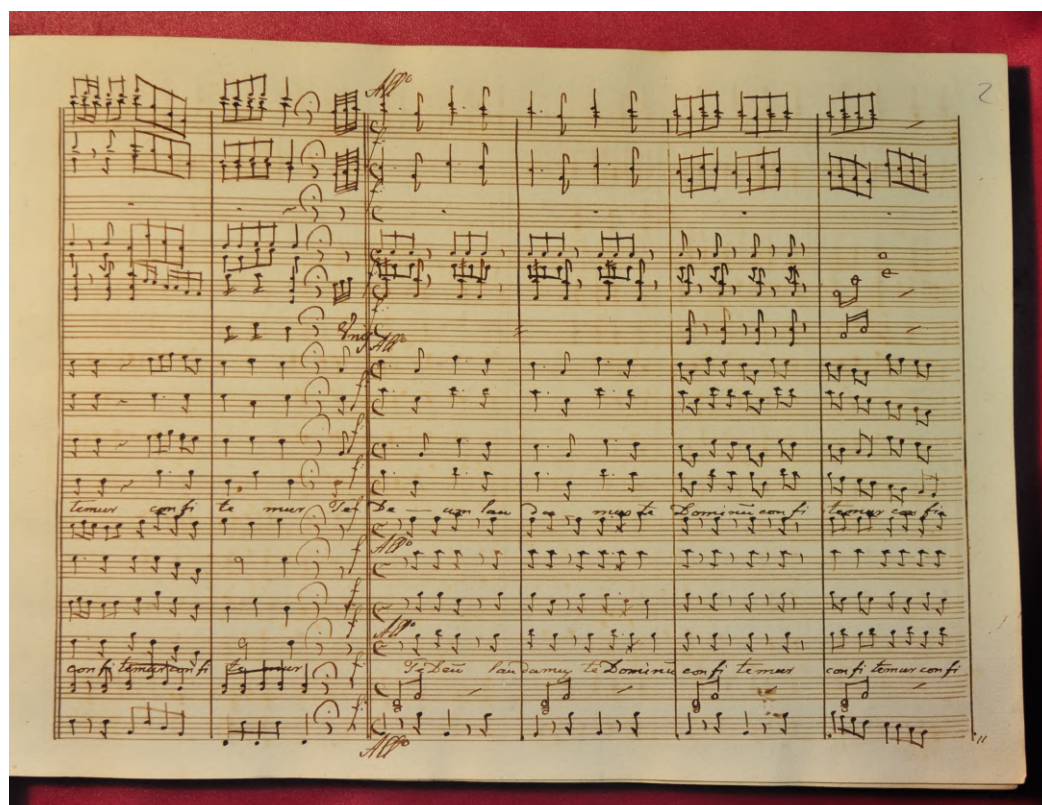 2
Allo
f.
Allo
f.
temur confi te mur Te De — um lau da — mus te Dominū confi temur confi
Allo
f.
Allo
confi temur confi te mur Te Deū laudamus te Dominū confi temur confi temur confi
f.
Allo